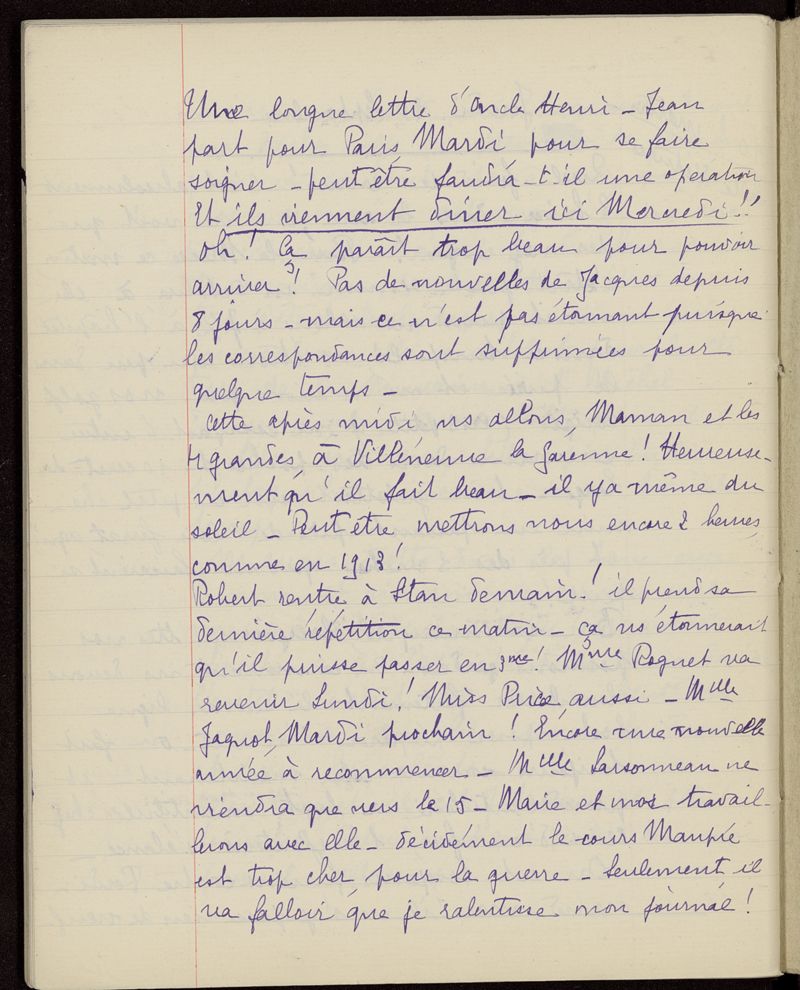 Une longue lettre d'oncle Henri - Jean
part pour Paris Mardi pour se faire
soigner - peut être faudra-t-il une opération
Et ils viennent dîner ici Mercredi!!
oh! Ça paraît trop beau pour pouvoir
arriver! Pas de nouvelles de Jacques depuis
8 jours - mais ce n'est pas étonnant puisque
les correspondances sont supprimées pour
quelque temps -
Cette après midi ns allons, Maman et les
4 grandes, à Villeneuve la Garenne! Heureuse-
ment qu'il fait beau - il y a même du
soleil - Peut être mettrons nous encore 2 heures,
comme en 1913!
Robert rentre à Stan demain! il prend sa
dernière répétition ce matin - ça ns étonnerait
qu'il puisse passer en 3me! Mme Roguet va
revenir Lundi! Miss Price, aussi - Melle
Jaquot, Mardi prochain! Encore une nouvelle
année à recommencer - Melle Sarsonneau ne
viendra que vers le 15 - Marie et moi travail-
lerons avec elle - décidément le cours Maupré
est trop cher pour la guerre - Seulement, il
va falloir que je ralentisse mon journal!